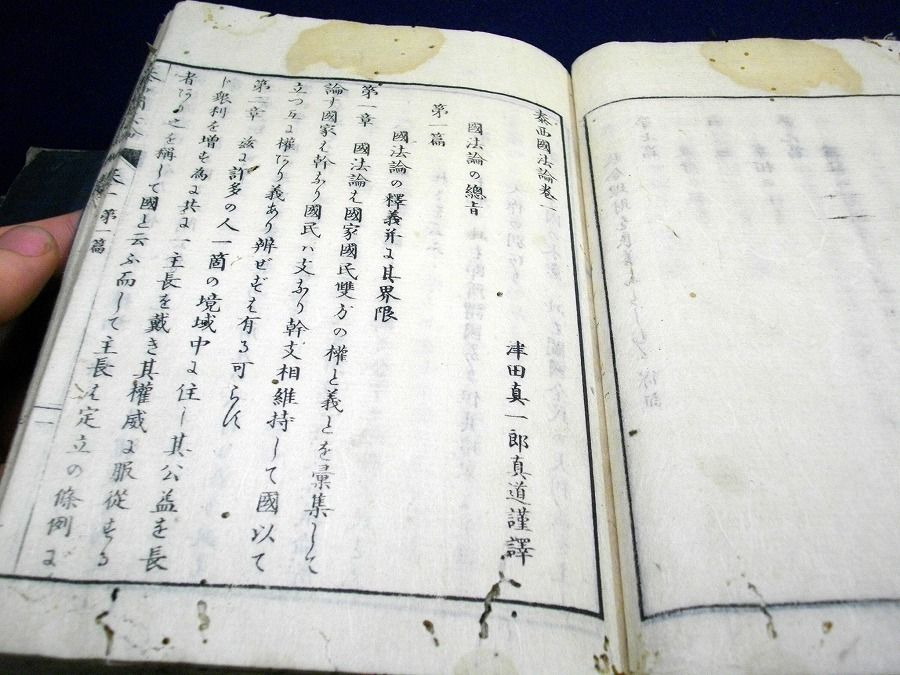 泰西國法論卷一
津田真一郎真道謹譯
國法論の總旨
第一篇
國法論の釋義并に其界限
第一章 國法論は國家國民雙方の權と義とを彙集して
論す國家は幹なり國民ハ支なり幹支相維持して國以て
立つ互に權あり義あり辨ぜずは有る可らす
第二章 茲に許多の人一箇の境域中に住し其公益を長
し衆利を增す為に共に一主長を戴き其權威に服從する
者ある之を稱して國と云ふ而して主長は定立の條例に
卷一 第一篇
一